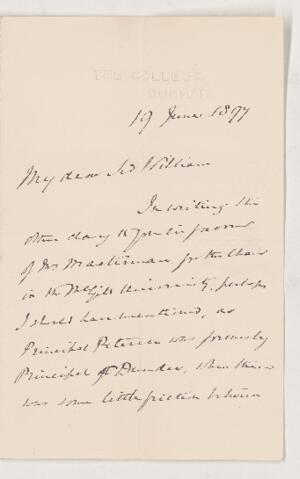 THE COLLEGE
DURHAM
19 June 1897
My dear Sir William
In writing the
other day to you in favour
of Mr Masterman for the Chair
in the McGill University, perhaps
I should have mentioned, as
Principal Peterson was formerly
Principal of Dundee, when there
was some little friction between